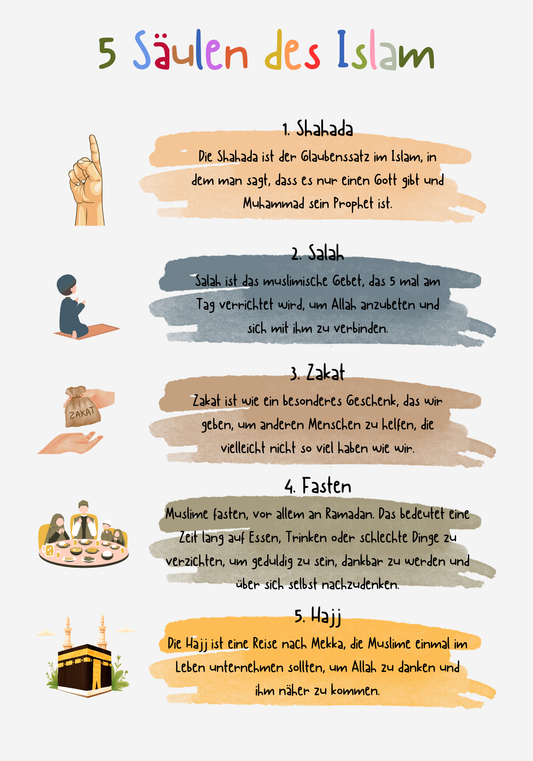 5 Säulen des Islam
1. Shahada
Die Shahada ist der Glaubenssatz im Islam, in
dem man sagt, dass es nur einen Gott gibt und
Muhammad sein Prophet ist.
2. Salah
Salah ist das muslimische Gebet, das 5 mal am
Tag verrichtet wird, um Allah anzubeten und
sich mit ihm zu verbinden.
3. Zakat
ZAKAT
Zakat ist wie ein besonderes Geschenk, das wir
geben, um anderen Menschen zu helfen, die
vielleicht nicht so viel haben wie wir.
4. Fasten
Muslime fasten, vor allem an Ramadan. Das bedeutet eine
Zeit lang auf Essen, Trinken oder schlechte Dinge zu
verzichten, um geduldig zu sein, dankbar zu werden und
über sich selbst nachzudenken.
5. Hajj
Die Hajj ist eine Reise nach Mekka, die Muslime einmal im
Leben unternehmen sollten, um Allah zu danken und
ihm näher zu kommen.